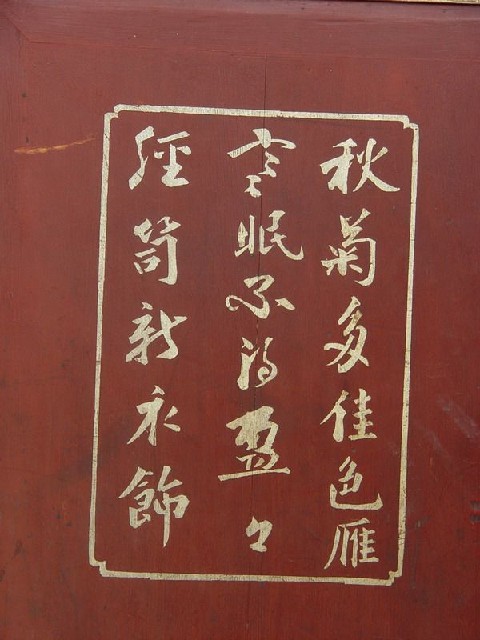 秋菊多佳色雁
寒眠不得盈々
經笥新衣飾